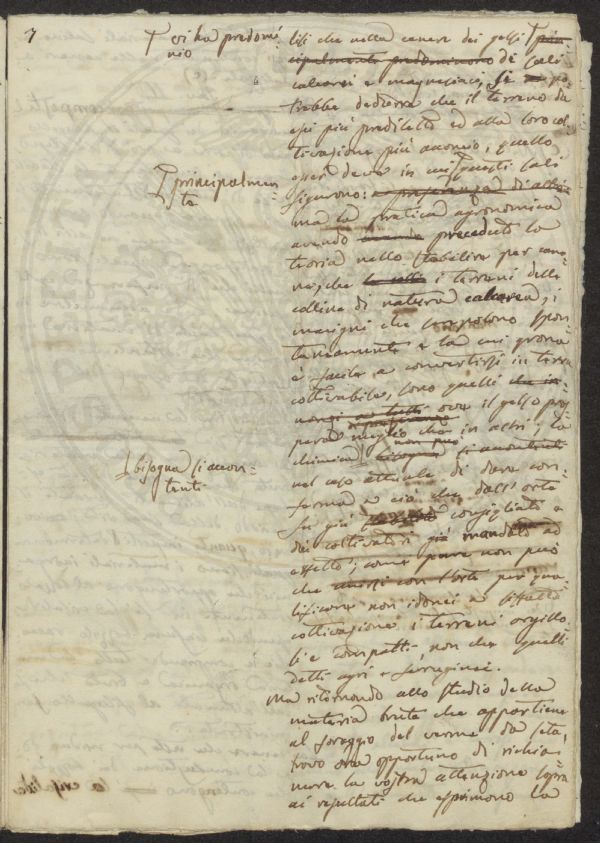 7
vi ha predomi-
nio
lisi che nella cenere dei gelsi prin-
cipalmente predominono di sali
calcarei e magnesiaci, si po-
trebbe dedurra che il terreno da
essi più prediletto ed alla loro col-
tivazione più acconcio, quello
esser deve in cui questi sali
principalmen-
te
figurono:
ma la pratica agronomica
avendo preceduti la
teoria nello stabilire per cano-
ne, che i terreni delle
colline di natura calcarea, i
macigni che spon-
taneamente e la cui
è facile a convertirsi in terra
coltivabile, sono quelli
ove il gelso pros-
pera meglio che in altri; la
chimica non può
bisogna si accon-
tenti
nel caso attuale di dare con-
ferma a ciò che dall'
fu già consigliato e
dai coltivatori già mandato ad
effetto; come pure non può
che per qua-
lificare non idonei a siffatta
coltivazione i terreni argillo-
si e compatti non che quelli
detti agri e ferruginei.
Ma ritornando allo studio della
materia bruta che appartiene
al foraggio del verme da seta,
trovo ora opportuno di richia-
mare la vostra attenzione sopra
ai resultati che esprimono la